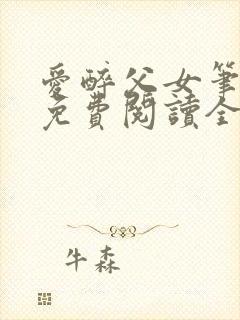 愛醉父女筆
免費閱讀全
牛森